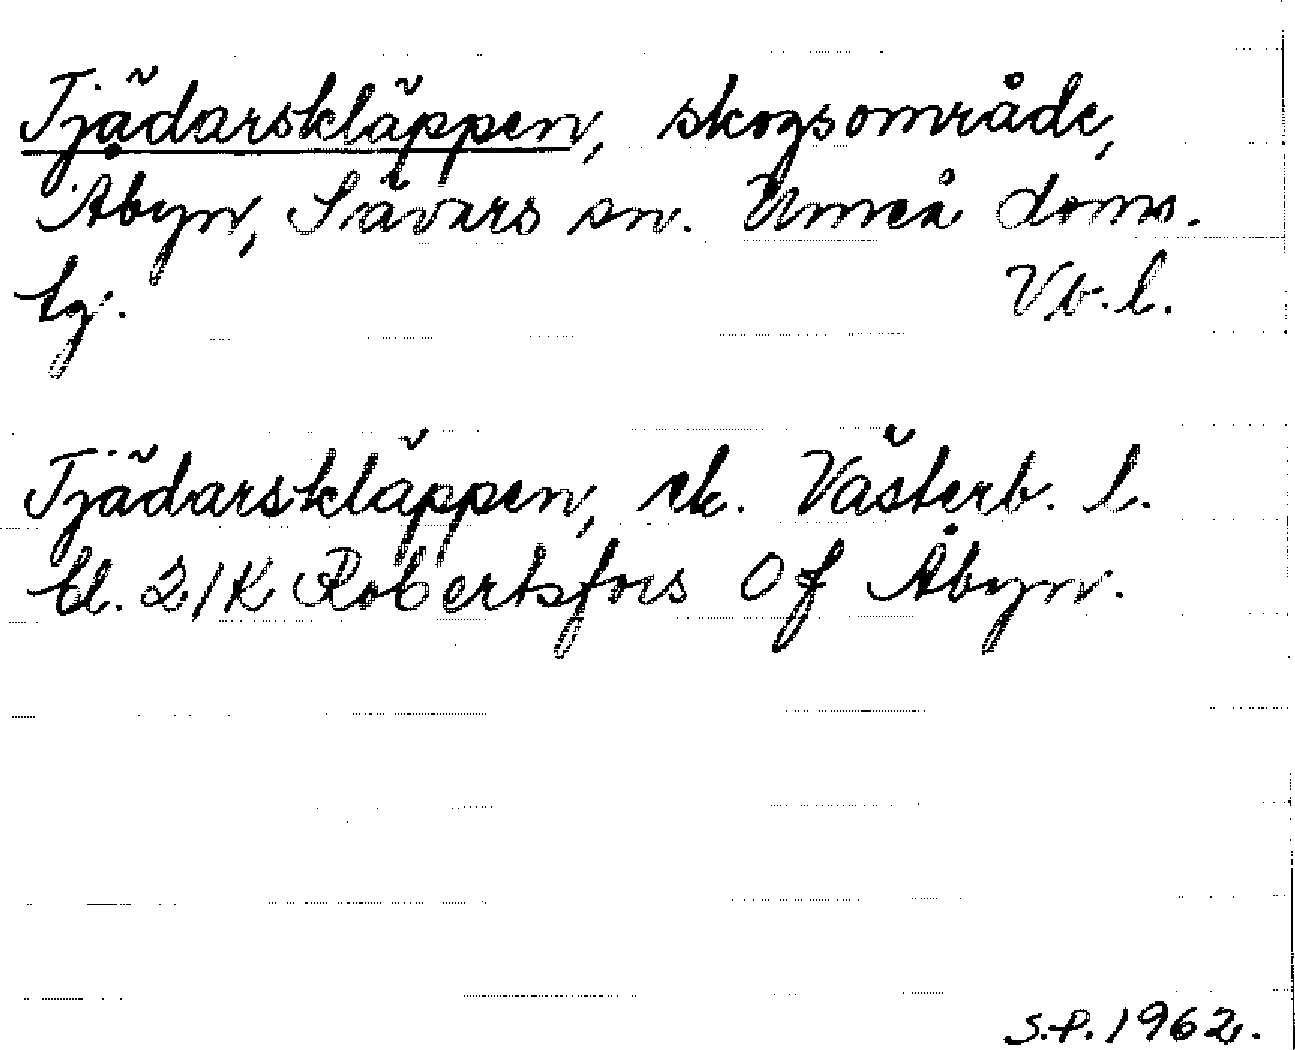 Tjädarskläppen, skogsområde,
Åbyn, Sävars sn. Umeå doms.
lg. Vb. l.
Tjädarskläppen, ek. Västerb. l.
bl. 21K Robertsfors Of Åbyn.
S.P. 1962.